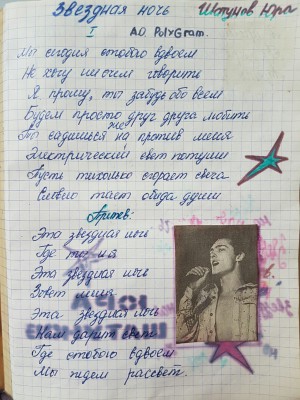 Звездная ночь
Шатунов Юра
I
A.O. PolyGram.
Мы сегодня с тобою вдвоем
Не хочу ни о чем говорить
Я прошу, ты забудь обо всем
Будем просто друг друга любить
Ты садишься на против меня
Электрический свет потуши
Пусть тихонько сгорает свеча
Словно тает обида души
Припев:
Эта звездная ночь
Где ты и я
Эта звездная ночь
Зовет меня
Эта звездная ночь
Нам дарит свет
Где с тобою вдвоем
Мы ждем рассвет.